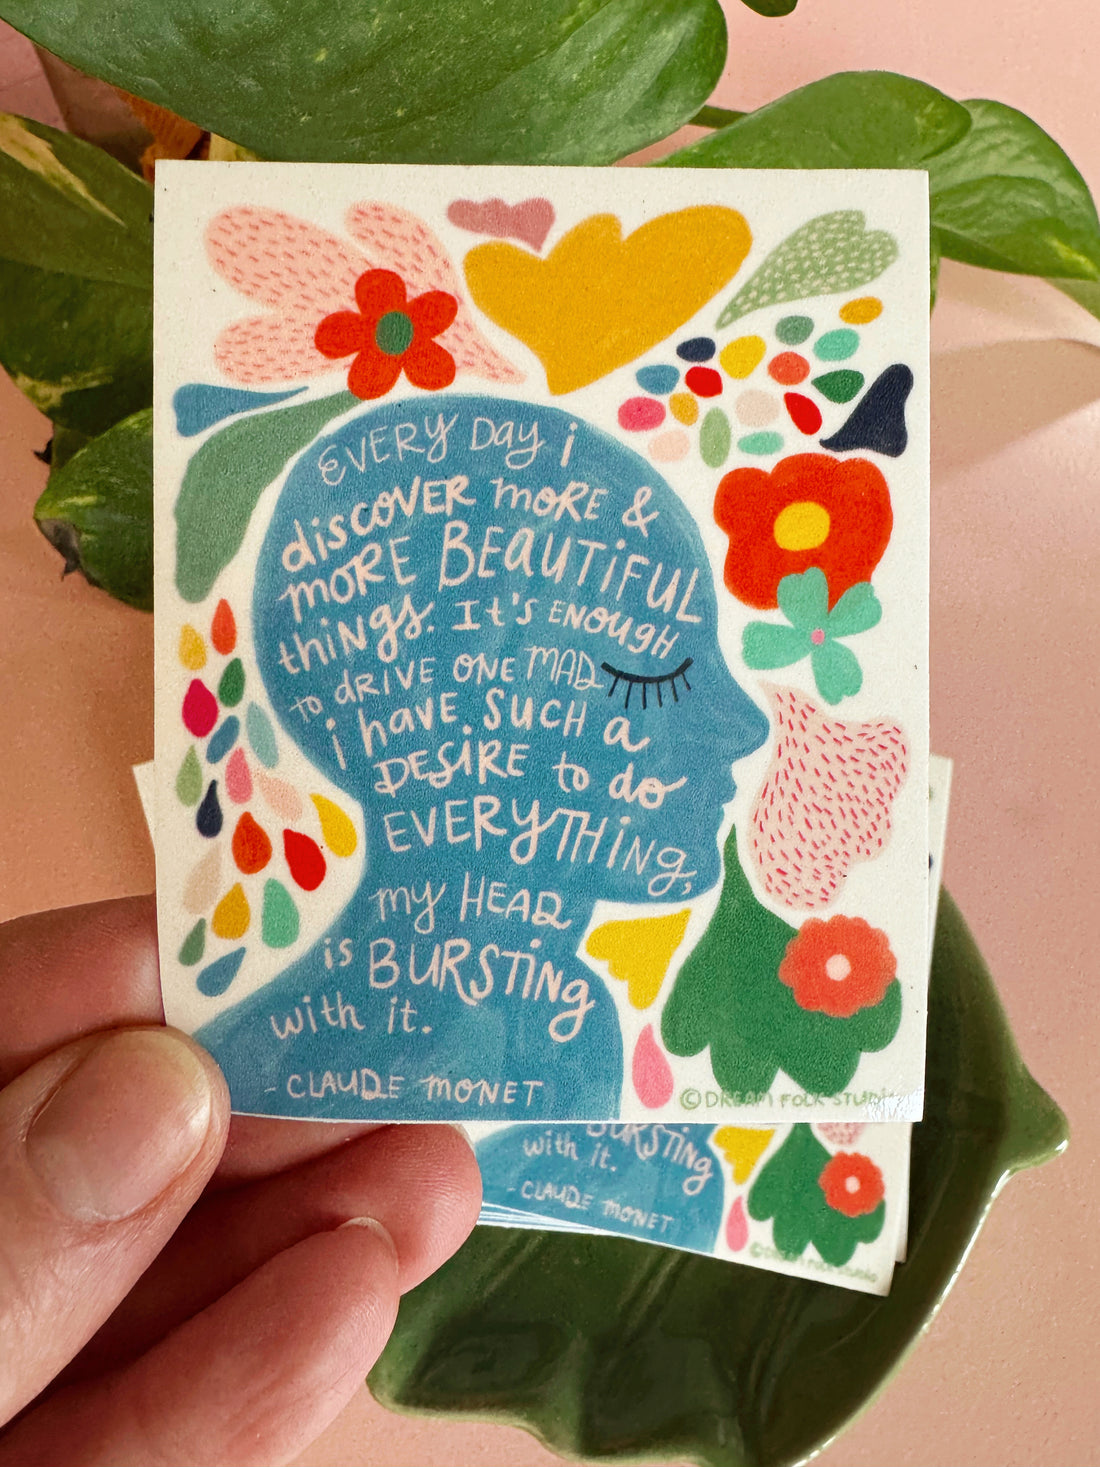 EVERY Day i
discover more &
more BEAUTIFUL
things. It's ENOUGH
to dRIVE ONE MAD
i have SUCH a
DESiRE to do
EVERYTHiNG,
my HEAD
is BURSTiNg
with it.
- CLAUDE MONET
©DREAM FOLK STUDIO
BURSTiNg
with it.
- CLAUDE MONET
©DREAM FOLK STUDIO